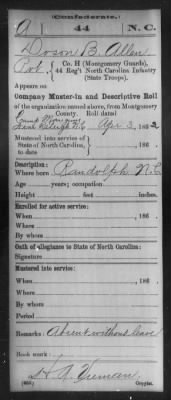 (Confederate.)
A 44 N.C.
Doson B. Allen
Pvt, Co. H (Montgomery Guards),
44 Reg't North Carolina Infantry
(State Troops).
Appears on
Company Muster-in and Descriptive Roll
of the organization named above, from Montgomery
County. Roll dated
Camp
near Raleigh N.C. Apr 3, 1862
Mustered into service of
State of North Carolina, , 186 .
to date
Description:
Where born Randolph N.C
Age years; occupation
Height feet inches.
Enrolled for active service:
When , 186 .
Where
By whom
Oath of allegiance to State of North Carolina:
Signature
Mustered into service:
When , 186 .
Where
By whom
Period
Remarks: Absent without leave
Book mark:
(656) Copyist.